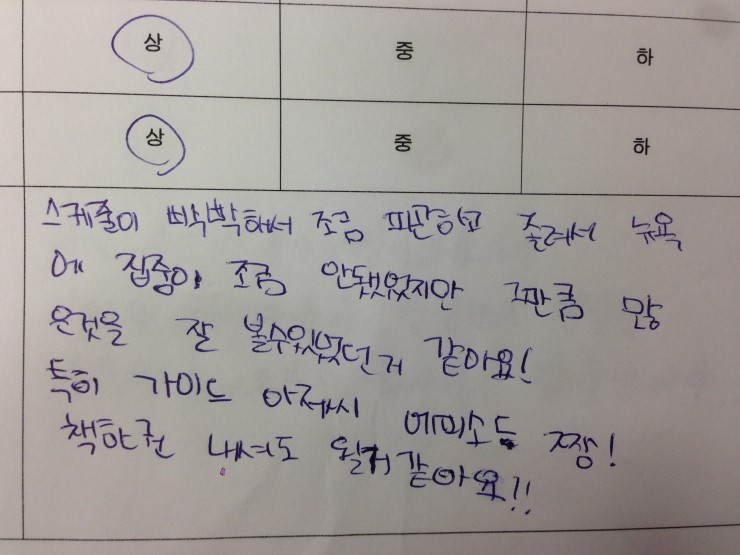 상 중 하
상 중 하
스케줄이 빡빡해서 조금 피곤하고 졸려서 뉴욕
에 집중이 조금 안됐었지만 그만큼 많
은것을 잘 볼수있었던거 같아요!
특히 가이드 아저씨 에피소드 짱!
책한권 내셔도 될거같아요!!